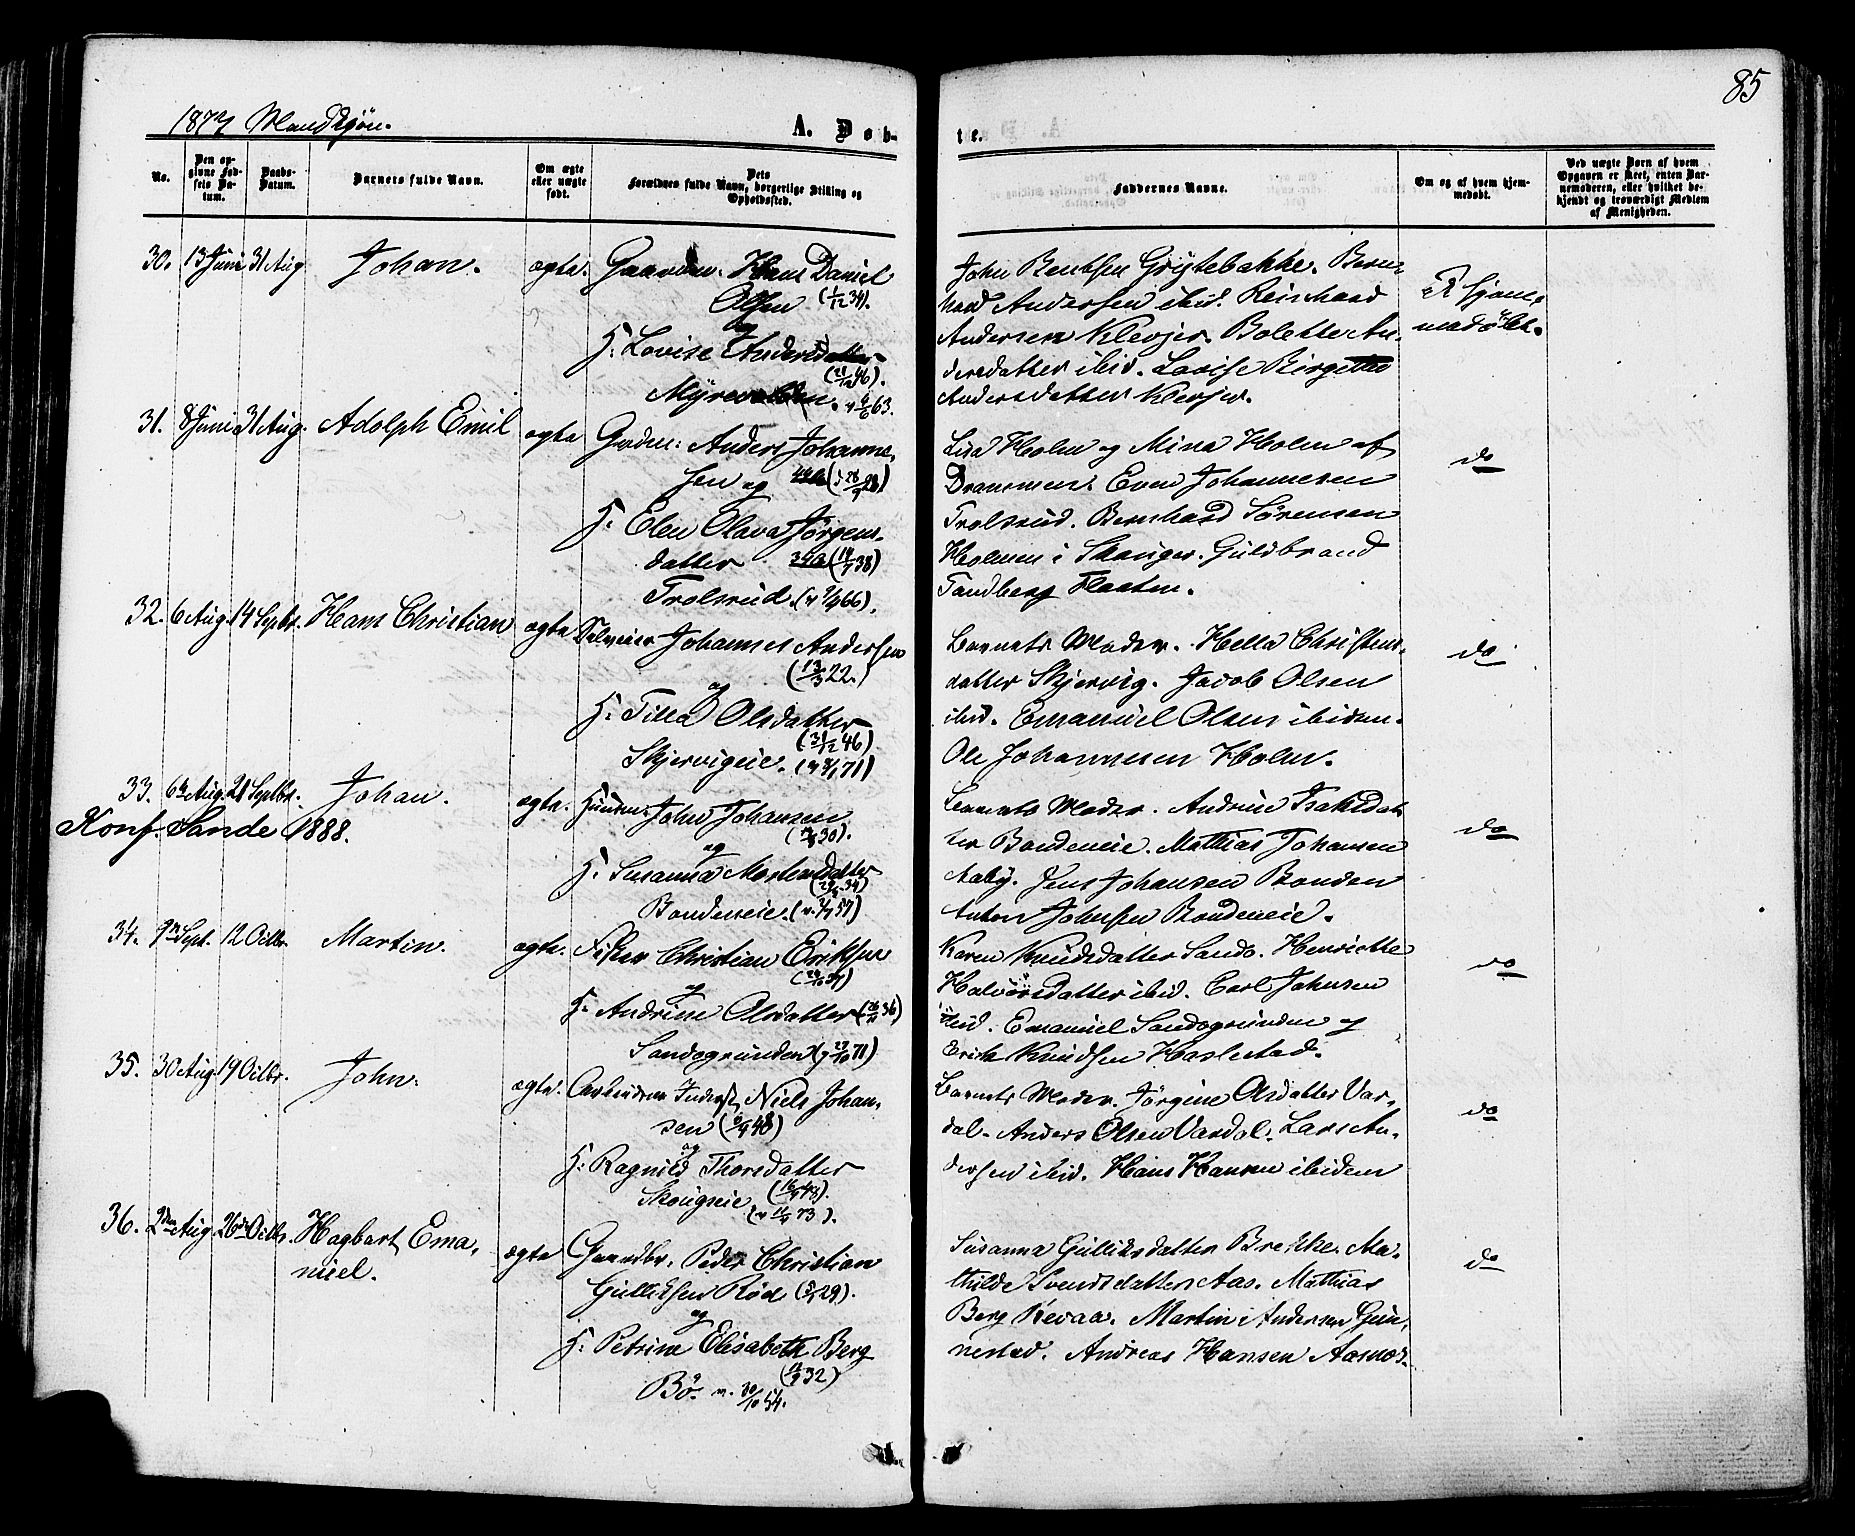 85
1873 Mandkjøn.
A. Døbte.
No.
Den opgivne Fødsels Datum.
Daabs-Datum.
Barnets fulde Navn.
Om ægte eller uægte født.
Forældres fulde Navn, borgerlige Stilling og Dets Opholdssted.
Faddernes Navne.
Om og af hvem hjemmedøbt.
Ved uægte Born af hvem Opgaven er skeet, enten Barnemoderen, eller hvilket bekjendt og troværdigt Medlem af Menigheden.
30. 13 Juni 31 Aug Johan. ægte. Gaardm. Hans Daniel
Olsen (1/12 34).
og
H: Lovise Andersdatter
(21/12 46).
63.
John Bentsen Grystebakke. Bern-
hard Andersen ibid. Reinhard
Andersen Klevjer. Bolette An-
dersdatter ibid. Lovise Birgitte
Andersdatter Klevjer.
Ei hjem-
medøbt.
31. 8 Juni 31 Aug. Adolph Emil ægte Anders Johanne-
sen og
H. Elen Olava Jørgens-
datter 38)
Trolsrud. 66).
Lisa Holm og Mina Holm af
Drammen. Even Johannesen
Trolsrud. Bernhard Sörensen
Holmen i Skauger. Guldbrand
Tandberg Flaaten.
do
32. 6 Aug. 14 Septbr. Hans Christian ægte Selveier Johannes Andersen
(13/3 22.)
og
H: Tilla Olsdatter
(31/12 46)
Skjervigeie. 71)
Barnets Moder. Hella Christens-
datter Skjervig. Jacob Olsen
ibid. Emanuel Olsen ibidem.
Ole Johannesen Holm.
do
33. 6te Aug. 21 Septbr. Johan. ægte. John Johansen
30).
Konf. Sande 1888.
og
H: Susanna Mortensdatter
34)
Bondeneie. 57)
Barnets Moder. Andrine Isaksdat-
ter Bondeneie. Mathias Johansen
Aaby. Jens Johansen Bonden
Anton Johnsen Bondeneie.
do
34. 9n Sept. 12 Octbr. Martin. ægte. Fisker Christian Eriksen
og
H: Andrine Olsdatter 36)
Sandogrunden 71)
Karen Knudsdatter Sando. Henriette
Halvorsdatter ibid. Carl Johnsen
ibid. Emanuel Sandogrunden og
Erich Knudsen Haslestad.
do
35. 30 Aug. 19 Octbr. John. ægte. Niels Johan-
sen 48)
og
H: Ragnild Thorsdatter
Skougseie
73).
Barnets Moder. Jörgine Olsdatter Var-
dal. Anders Olsen Vardal. Lars An-
dersen ibid. Hans Hansen ibidem
do
36. 2den Aug. 26de Octbr. Hagbart Ema-
nuel.
ægte Gaardbr. Peder Christian
Gulliksen Röd 29).
og
H: Petrine Elisabeth Berg
32)
Bö. 30/10 54.
Susanna Gulliksdatter Brekke. Ma-
thilde Svendsdatter Aas. Mathias
Berg Revaa. Martin Andersen Gun-
nestad. Andreas Hansen
do